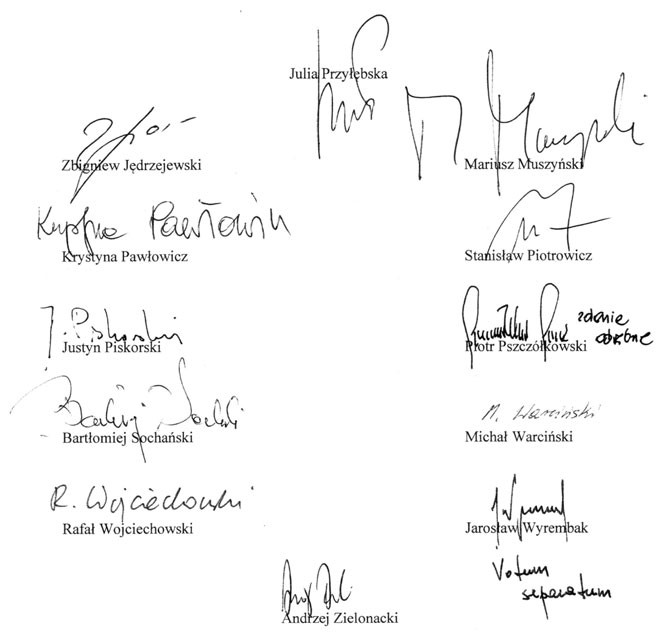 Julia Przyłębska
Zbigniew Jędrzejewski
Mariusz Muszyński
Krystyna Pawłowicz
Krystyna Pawłowicz
Stanisław Piotrowicz
J. Piskorski
Justyn Piskorski
zdanie
odrębne
Piotr Pszczółkowski
Bartłomiej Sochański
M. Warciński
Michał Warciński
R. Wojciechowski
Rafał Wojciechowski
Jarosław Wyrembak
Votum
separatum
Andrzej Zielonacki